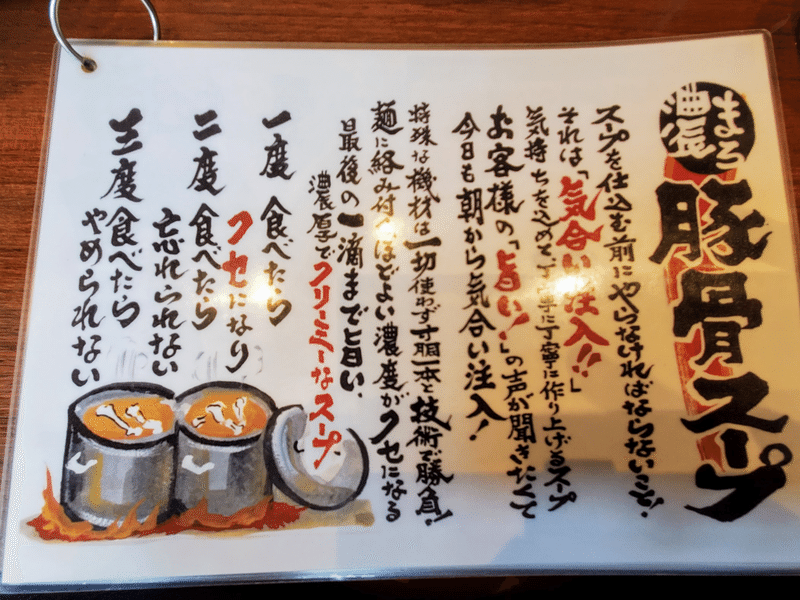 濃厚まろ
豚骨スープ
スープを仕込む前にやらなければならないこと!
それは「気合い注入!!」
気持ちを込めて、丁寧に丁寧に作り上げるスープ
お客様の「旨い!」の声が聞きたくて
今日も朝から気合い注入!
特殊な機材は一切使わず寸胴一本と技術で勝負!
麺に絡み付くほどよい濃度がクセになる
最後の一滴まで旨い、
濃厚でクリーミーなスープ
一度食べたら
クセになり
二度食べたら
忘れられない
三度食べたら
やめられない